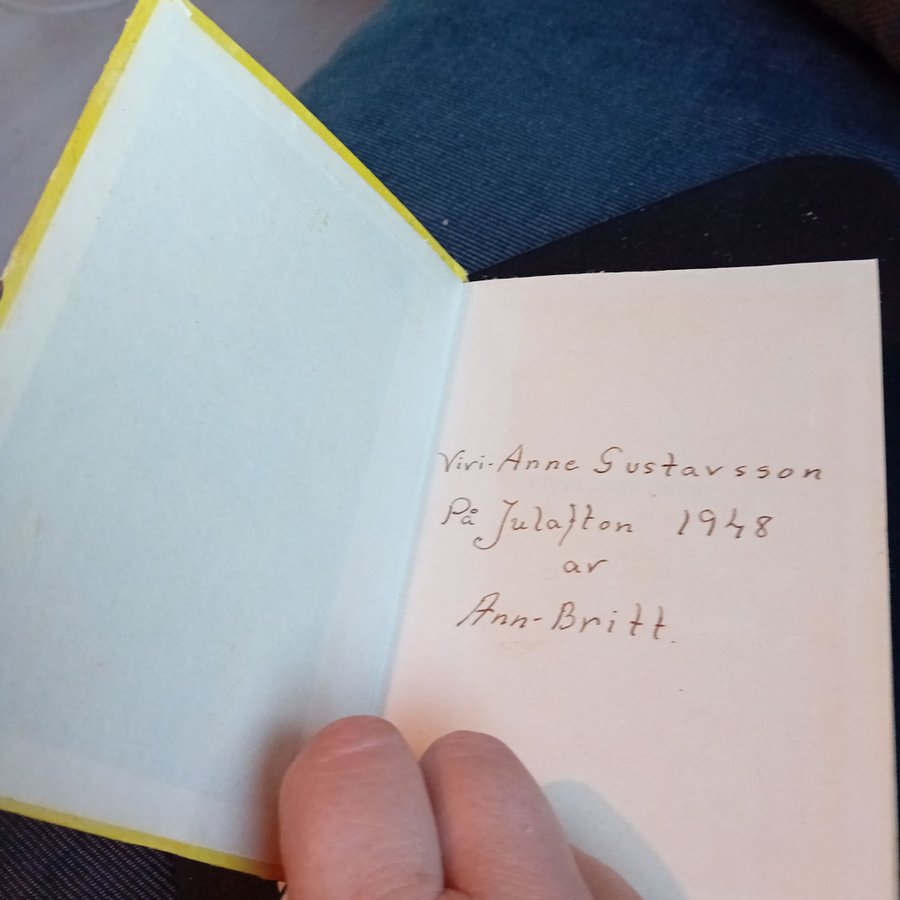 Vivi-Anne Gustavsson
På Julafton 1948
av
Ann-Britt.